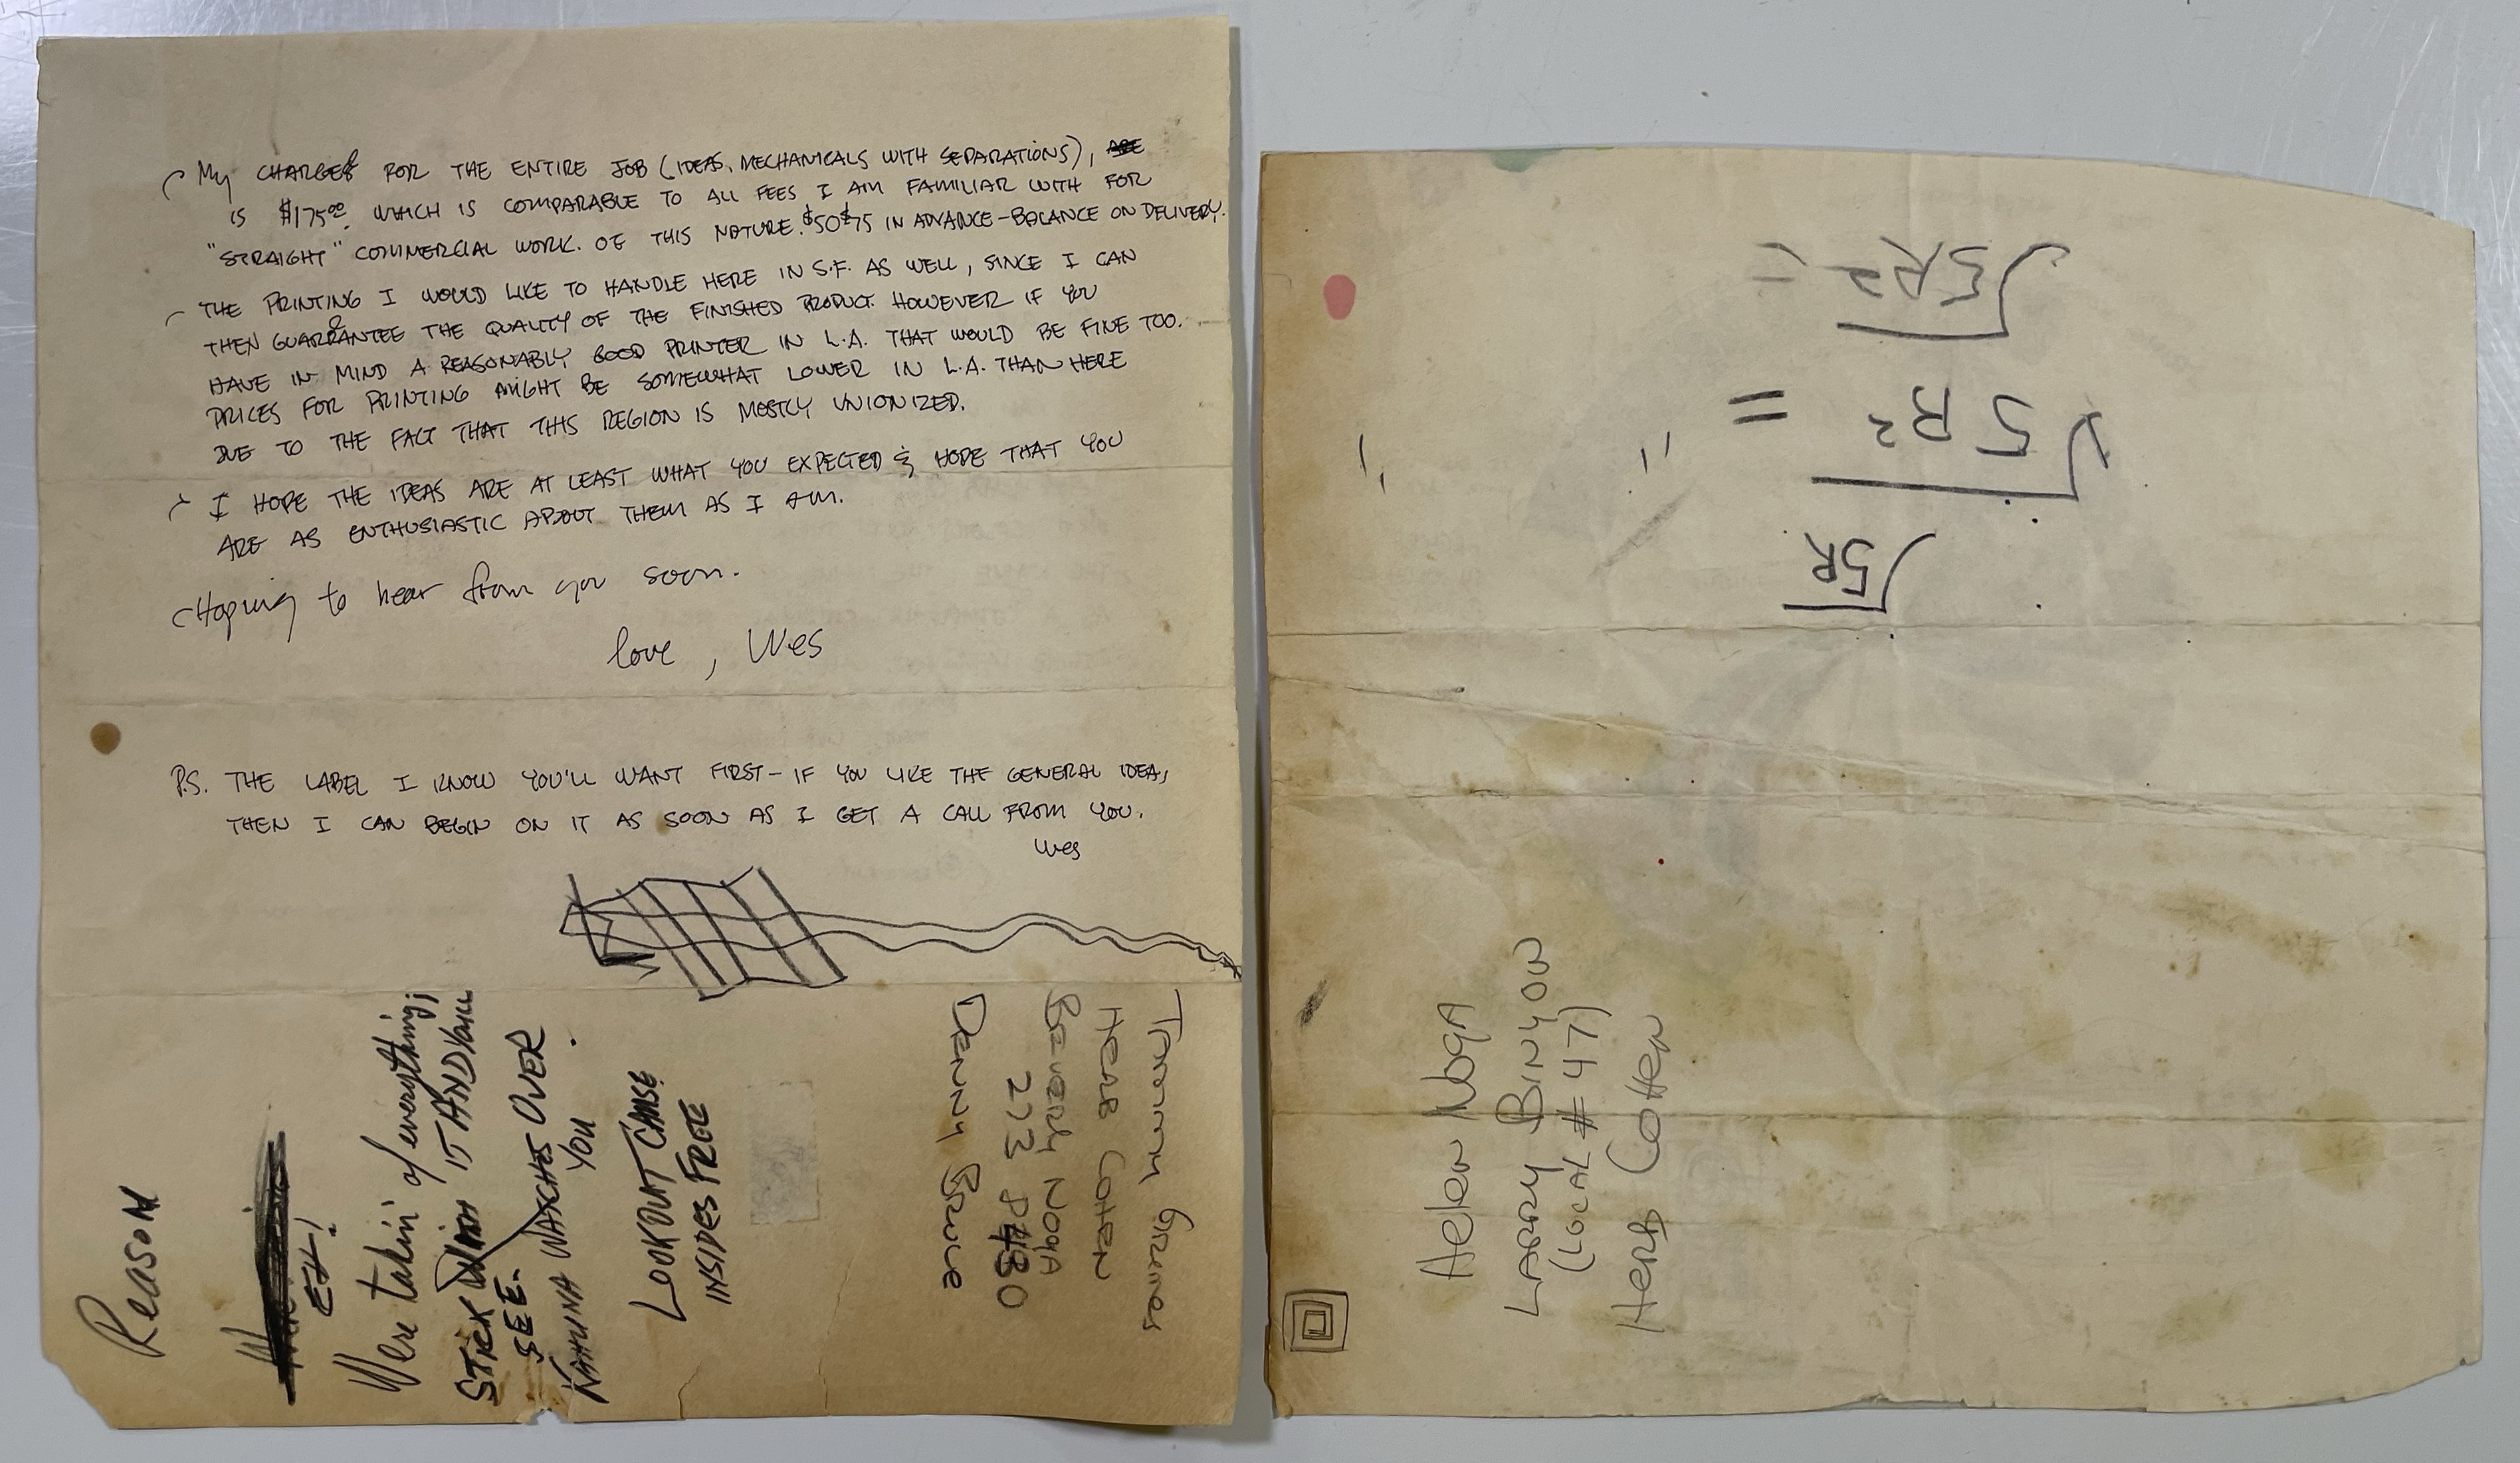 My CHARGES FOR THE ENTIRE JOB (IDEAS, MECHANICALS WITH SEPARATIONS), ARE
IS $175.00. WHICH IS COMPARABLE TO ALL FEES I AM FAMILIAR WITH FOR
"STRAIGHT" COMMERCIAL WORK. OF THIS NATURE. $50 $75 IN ADVANCE - BALANCE ON DELIVERY.
THE PRINTING I WOULD LIKE TO HANDLE HERE IN S.F. AS WELL, SINCE I CAN
THEN GUARRANTEE THE QUALITY OF THE FINISHED PRODUCT. HOWEVER IF YOU
HAVE IN MIND A REASONABLY GOOD PRINTER IN L.A. THAT WOULD BE FINE TOO.
PRICES FOR PRINTING MIGHT BE SOMEWHAT LOWER IN L.A. THAN HERE
DUE TO THE FACT THAT THIS REGION IS MOSTLY UNIONIZED.
I HOPE THE IDEAS ARE AT LEAST WHAT YOU EXPECTED & HOPE THAT YOU
ARE AS ENTHUSIASTIC ABOUT THEM AS I AM.
Hoping to hear from you soon.
love, Wes
P.S. THE LABEL I KNOW YOU'LL WANT FIRST - IF YOU LIKE THE GENERAL IDEA,
THEN I CAN BEGIN ON IT AS SOON AS I GET A CALL FROM YOU.
Wes
Reason
Were takin' of everything;
STICK WITH IT AND YOULL
SEE.
NAHUNA WATCHES OVER
YOU.
LOOKOUT CAUSE
INSIDES FREE
Tommy Grimes
HERB COHEN
Beverly NOGA
273
DENNY BRUCE
√5R2 =
√5R2 =
" "
√5R
Helen Noga
LARRY BINYON
(LOCAL #47)
HERB COHEN